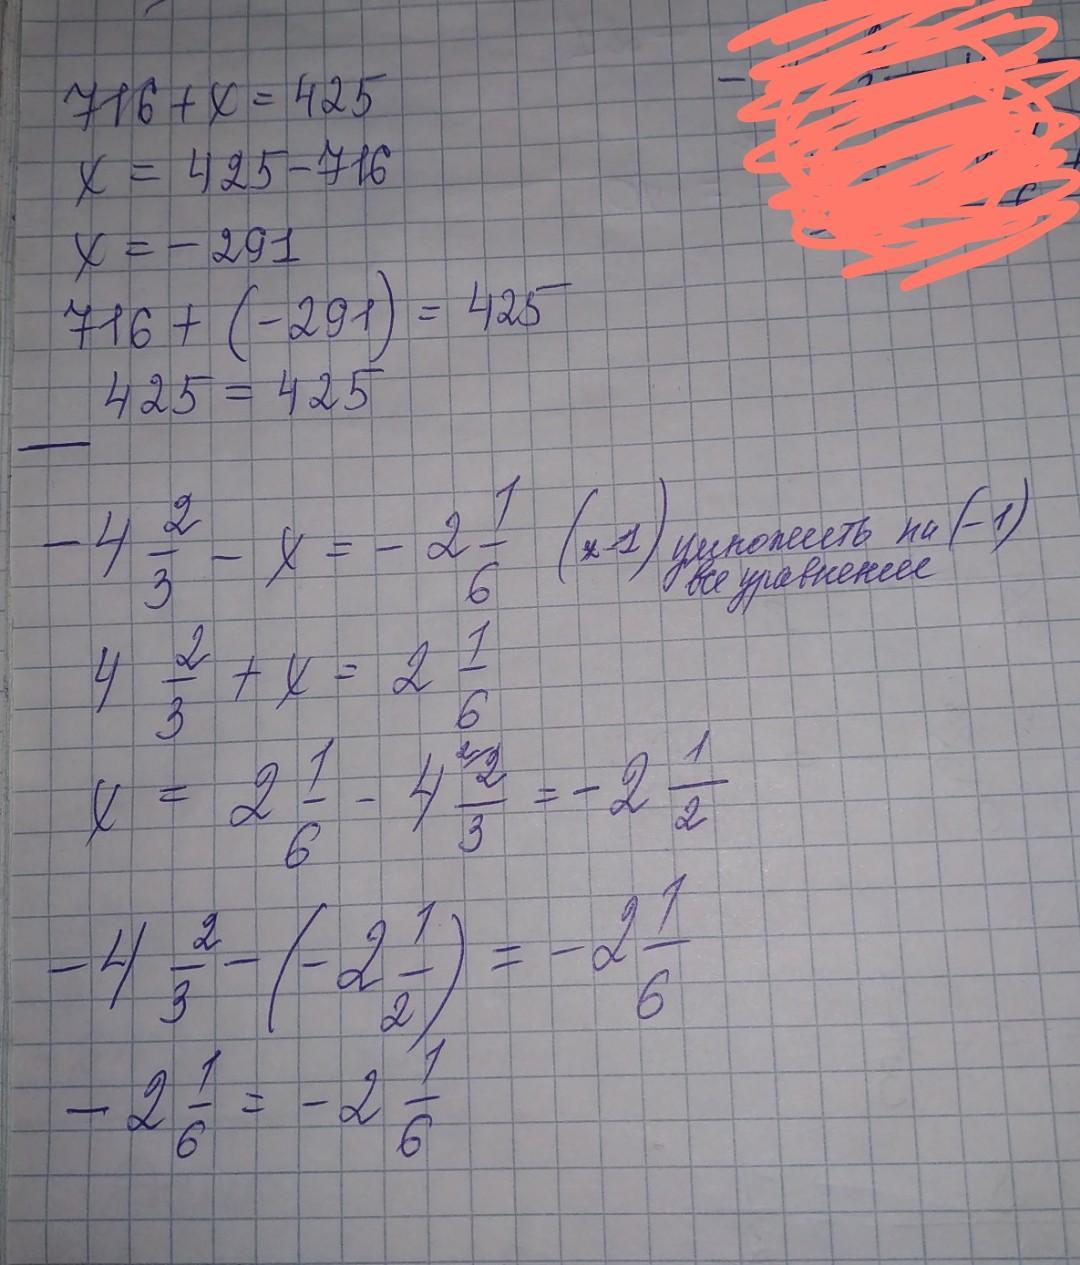 716 + x = 425
x = 425 - 716
x = - 291
716 + (-291) = 425
425 = 425
-4 2/3 - x = -2 1/6 (x-1) умножить на (-1)
все уравнение
4 2/3 + x = 2 1/6
x = 2 1/6 - 4 2/3 ² = -2 1/2
-4 2/3 - (-2 1/2) = -2 1/6
-2 1/6 = -2 1/6